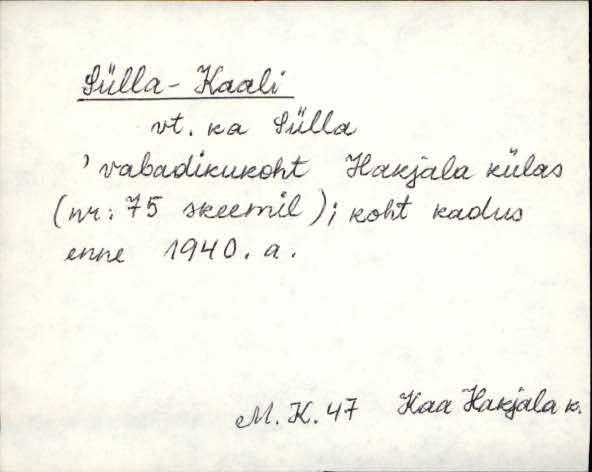 Sülla-Kaali
vt. ka Sülla
' vabadikukoht Hakjala külas
(nr: 75 skeemil); koht kadus
enne 1940. a.
M. K. 47 Kaa Hakjala k.